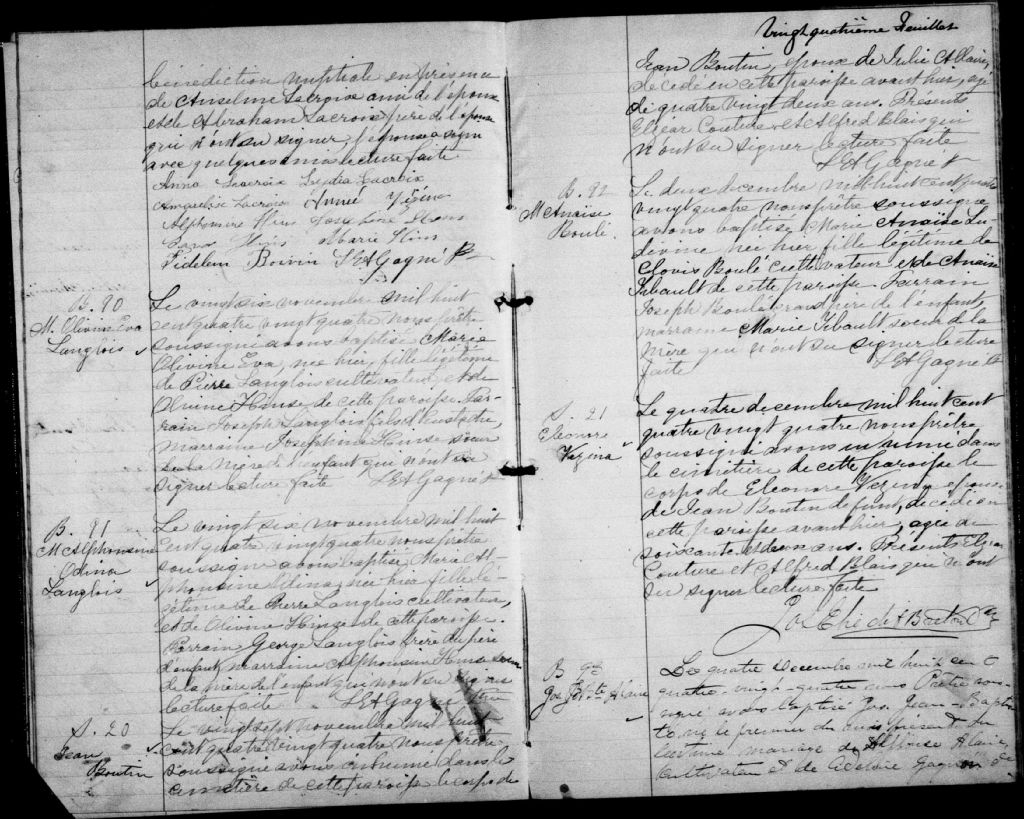 bénédiction nuptiale en présence
de Anselme Lacroix ami de l'époux
et de Abraham Lacroix père de l'épouse
qui n'ont su signer, l'épouse a signé
avec quelques amis lecture faite
Anna Lacroix Lydia Lacroix
Lacroix Annie Vézina
Alphonsine
Marie
Fidelem Boivin LEAGagné Ptre
B. 90
M. Olivine Eva
Langlois
Le vingt six novembre mil huit
cent quatre vingt quatre nous prêtre
soussigné avons baptisé Marie
Olivine Eva, née hier, fille légitime
de Pierre Langlois cultivateur, et de
Olivine Hinse de cette paroisse. Par-
rain Joseph Langlois
marraine Josephine Hinse soeur
de la mère de l'enfant qui n'ont su
signer lecture faite LEAGagné Ptre
B. 91
M Alphonsine
Odina
Langlois
Le vingt six novembre mil huit
cent quatre vingt quatre nous prêtre
soussigné avons baptisé Marie Al-
phonsine Odina, née hier fille lé-
gitime de Pierre Langlois cultivateur,
et de Olivine Hinse de cette paroisse.
Parrain George Langlois frère du père
d'enfant marraine Alphonsine Hinse soeur
de la mère de l'enfant qui n'ont su signer
lecture faite LEAGagné Ptre
S. 20
Jean
Boutin
Le vingt sept novembre mil huit
cent quatre vingt quatre nous prêtre
soussigné avons inhumé dans le
cimetière de cette paroisse le corps de
Vingt quatrième Feuillet
Jean Boutin, époux de Julie Allaire,
décédé en cette paroisse avant hier, agé
de quatre vingt deux ans. Présents
Elzéar Couture et Alfred Blais qui
n'ont su signer lecture faite
LEAGagné Ptre
B. 92
M Anaïse
Boulé
Le deux decembre mil huit cent quatre
vingt quatre nous prêtre soussigné
avons baptisé Marie Anaïse Lu-
divine née hier fille légitime de
Clovis Boulé cultivateur et de Anaïse
Tibault de cette paroisse Parrain
Joseph Boulé grand père de l'enfant,
marraine Marie Tibault soeur de la
mère qui n'ont su signer lecture
faite LEAGagné Ptre
S. 21
Eleonore
Vezina
Le quatre decembre mil huit cent
quatre vingt quatre nous prêtre
soussigné avons inhumé dans
le cimetière de cette paroisse le
corps de Eleonore Vezina épouse
de Jean Boutin defunt, décédée en
cette paroisse avant hier, agée de
soixante et deux ans. Présents Elzéar
Couture et Alfred Blais qui n'ont
su signer lecture faite
B 93
Jos Bte Alaire
Le quatre Decembre mil huit cent
quatre-vingt-quatre nous Prêtre sous-
signé avons baptisé Jos. Jean-Baptis-
te né le premier du mois présent du
légitime mariage de Alfonse Alaire
Cultivateur & de Adelaïe Gagnon de